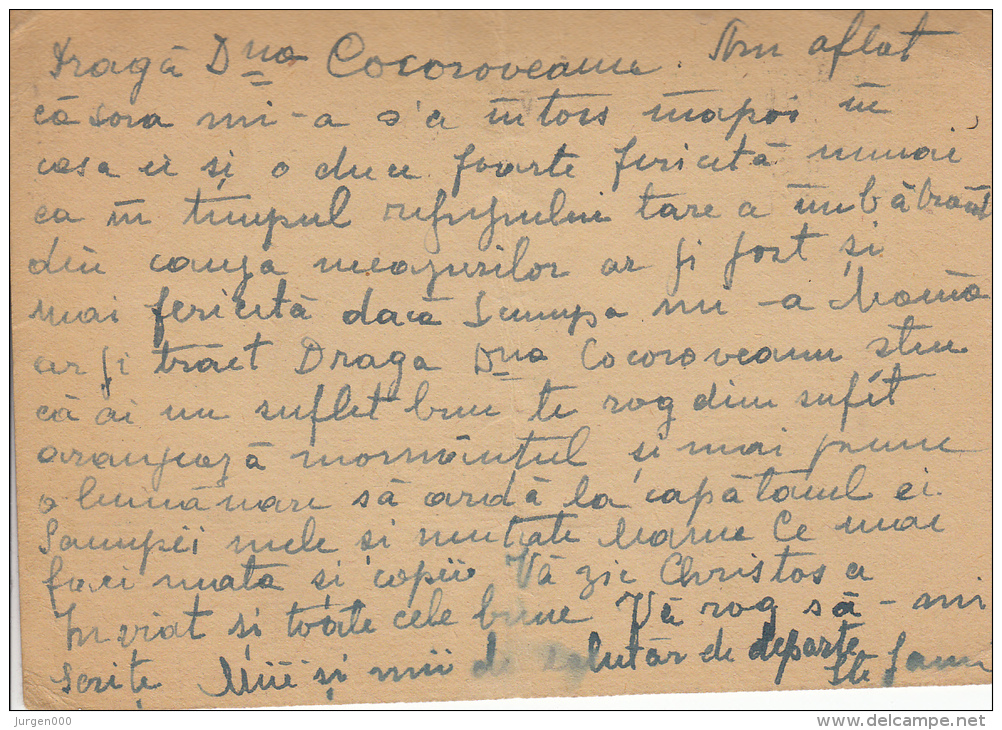 Dragă Dna Cocoroveanu. Am aflat
că sora mi-a s'a întors înapoi în
casa ei și o duce foarte fericită numai
ca în timpul refugiului tare a îmbătrânit
din cauza necazurilor ar fi fost și
mai fericită dacă Scumpa mi-a Mamă
ar fi trăit Draga Dna Cocoroveanu știu
că ai un suflet bun te rog din suflet
aranjează mormântul și mai pune
o lumânare să ardă la capătaiul ei
Scumpei mele și neuitate Mame Ce mai
faci mata și copii Vă zic Christos a
Inviat și toate cele bune Vă rog să-mi
scriți Mii și mii de salutări de departe
Jurgen000
www.delcampe.net